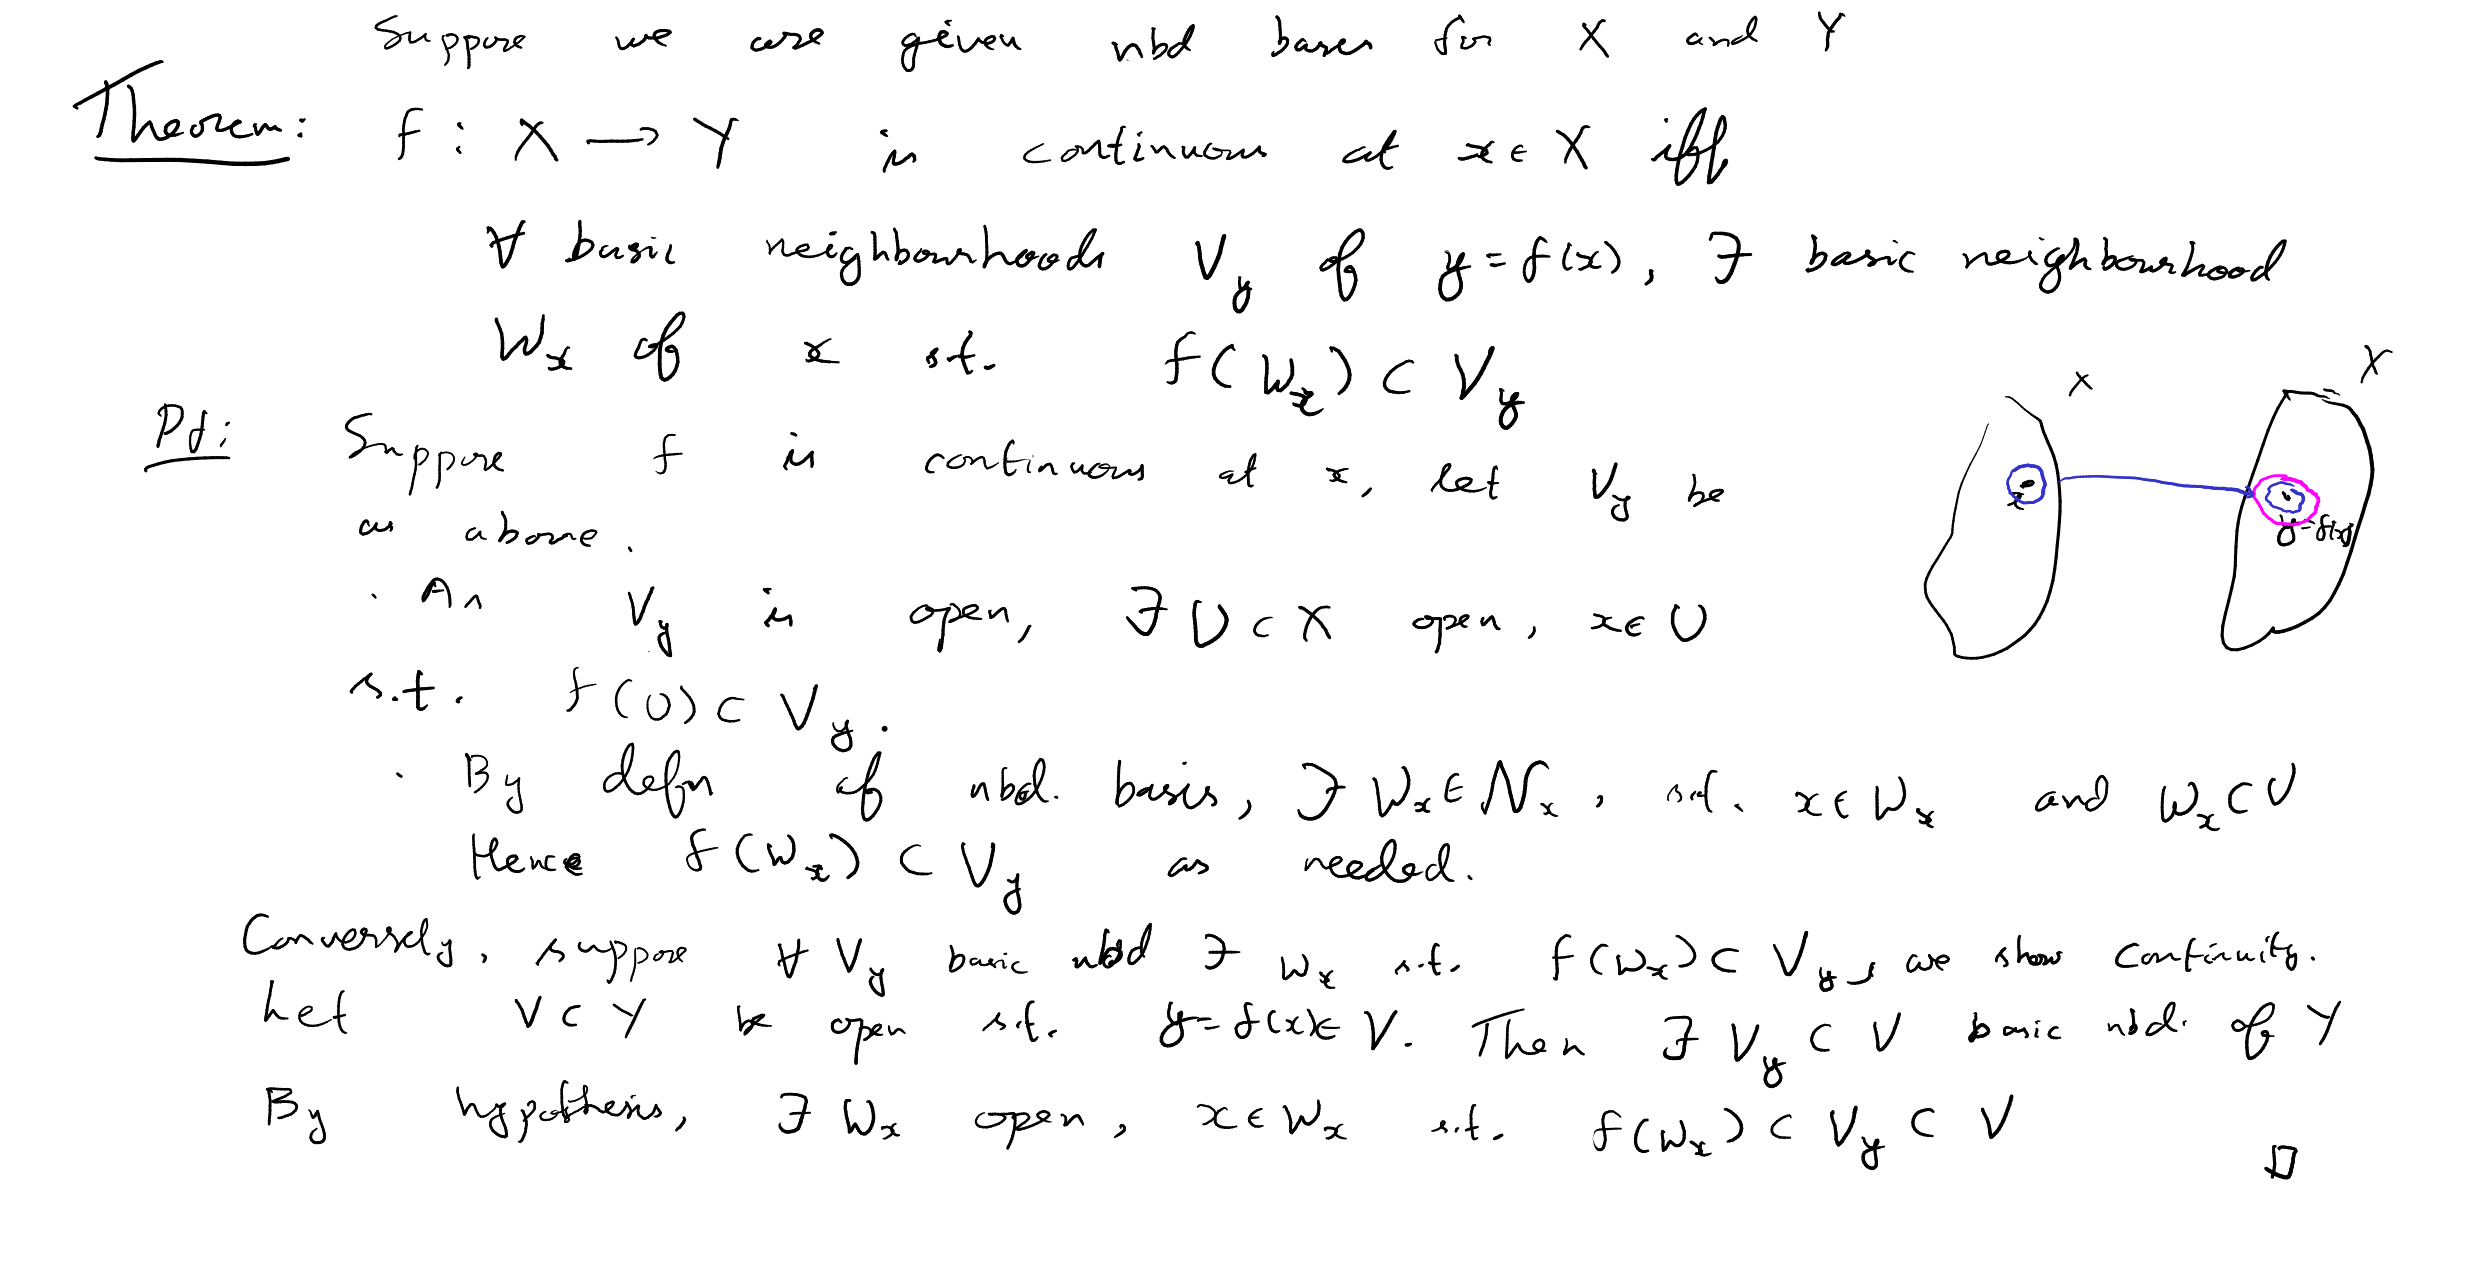 Suppose we are given nbd bases for X and Y
Theorem: f : X → Y is continuous at x ∈ X iff
∀ basic neighbourhoods V_y of y = f(x), ∃ basic neighbourhood
W_x of x s.t. f(W_x) ⊂ V_y
X
Y
x
y=f(x)
Pf: Suppose f is continuous at x, let V_y be
as above.
· As V_y is open, ∃ U ⊂ X open, x ∈ U
s.t. f(U) ⊂ V_y.
· By defn of nbd. basis, ∃ W_x ∈ N_x, s.t. x ∈ W_x and W_x ⊂ U
Hence f(W_x) ⊂ V_y as needed.
Conversely, suppose ∀ V_y basic nbd ∃ W_x s.t. f(W_x) ⊂ V_y, we show continuity.
Let V ⊂ Y be open s.t. y = f(x) ∈ V. Then ∃ V_y ⊂ V basic nbd. of Y
By hypothesis, ∃ W_x open, x ∈ W_x s.t. f(W_x) ⊂ V_y ⊂ V
□